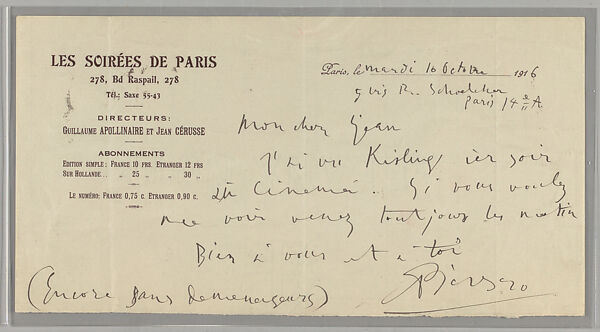 LES SOIRÉES DE PARIS
278, Bd Raspail, 278
Tél.: Saxe 55-43
DIRECTEURS:
GUILLAUME APOLLINAIRE ET JEAN CÉRUSSE
ABONNEMENTS
EDITION SIMPLE: FRANCE 10 FRS. ETRANGER 12 FRS
SUR HOLLANDE... „ 25 „ „ 30 „
LE NUMÉRO: FRANCE 0,75 C. ETRANGER 0,90 C.
Paris, le mardi 10 Octobre 1916
5 bis R. Schoelcher
Paris 14e
Mon cher Jean
J'ai vu Kisling ier soir
au Cinema. Si vous voulez
me voir venez toutjours les matin
Bien à vous et à toi
Picasso
(Encore sans demenageurs)